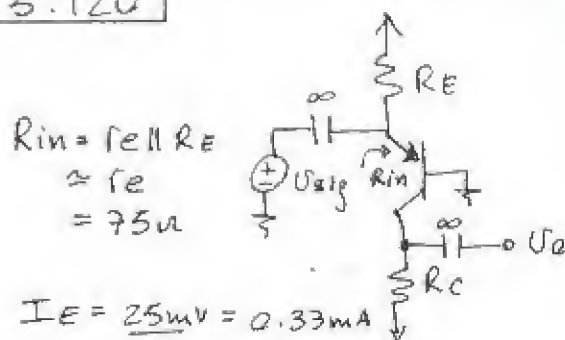 5.120
∞
RE
Rin = re || RE
≈ re
= 75Ω
Usig
Rin
∞
Uo
RC
IE = 25mV = 0.33mA